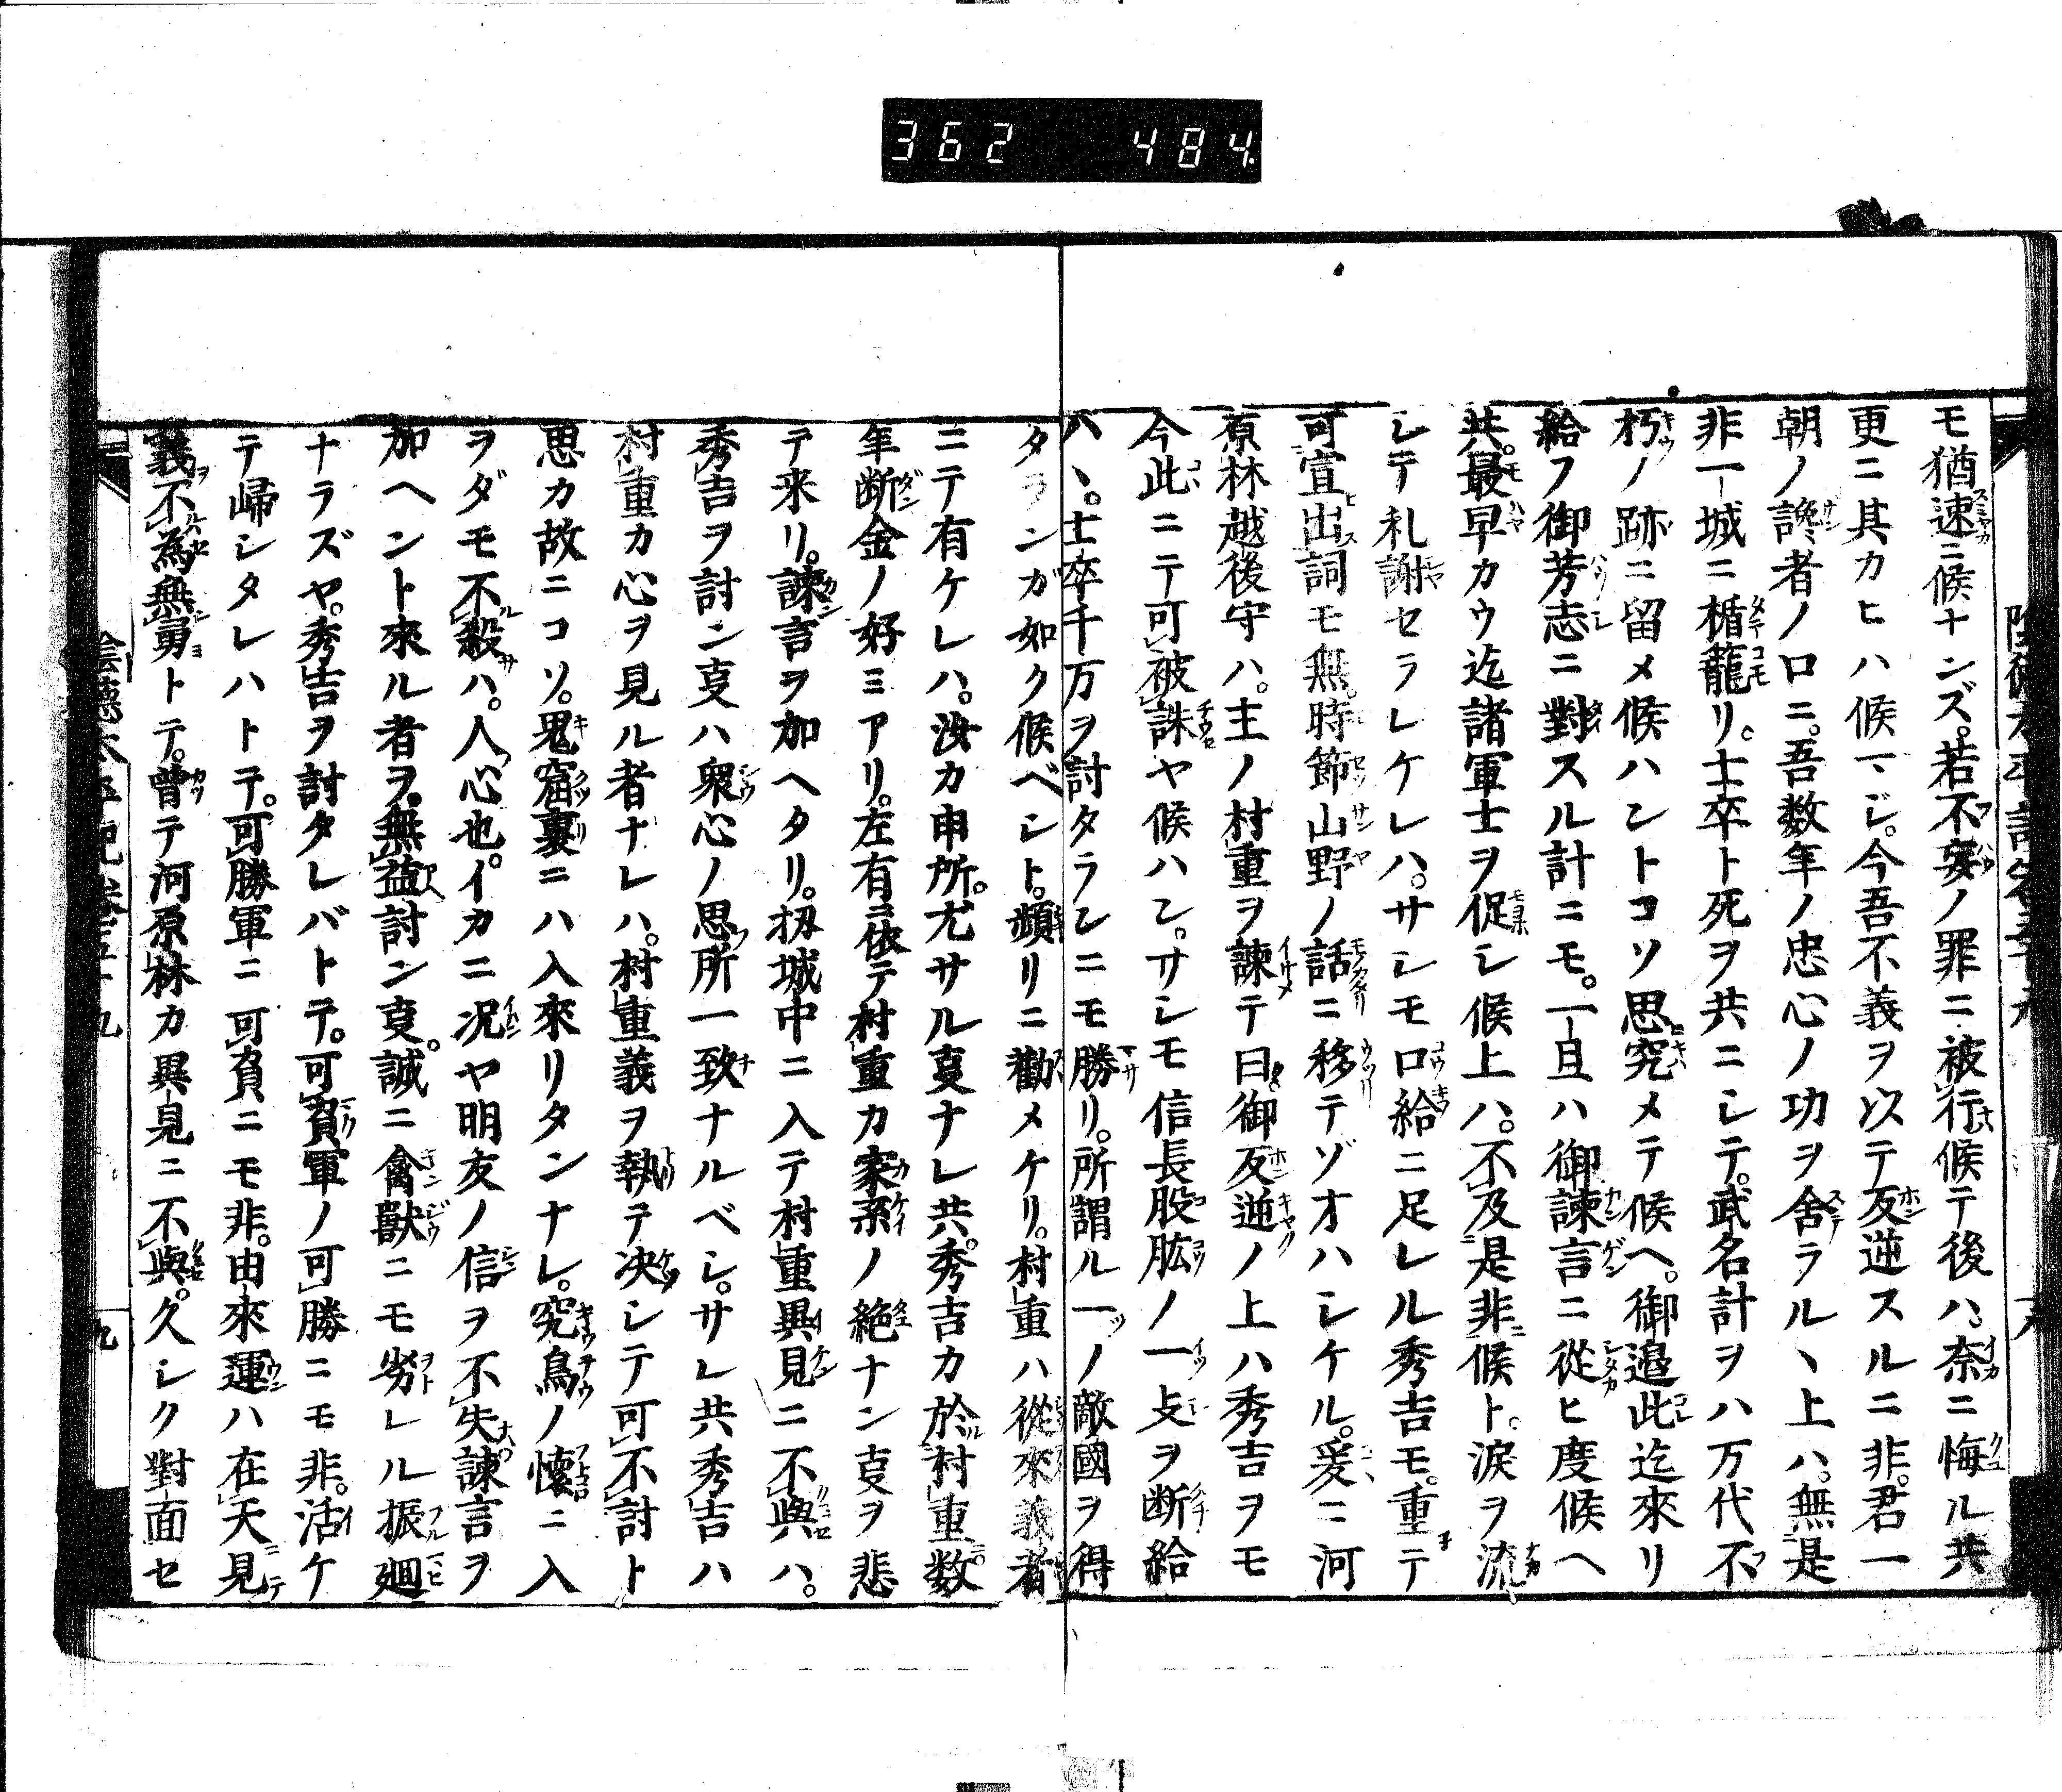 362 484
モ猶速ニ候ナンズ。若不安ノ罪ニ被行候テ後ハ、奈ニ悔ル共
更ニ其カヒハ候マジ。今吾不義ヲ以テ反逆スルニ非。君一
朝ノ讒者ノ口ニ。吾数年ノ忠心ノ功ヲ舍ラルヽ上ハ。無是
非一城ニ楯籠リ。士卒ト死ヲ共ニシテ。武名計ヲハ万代不
朽ノ跡ニ留メ候ハントコソ思究メテ候ヘ。御邉此迄來リ
給フ御芳志ニ對スル計ニモ。一旦ハ御諫言ニ從ヒ度候ヘ
共。最早カウ迄諸軍士ヲ促シ候上ハ。不及是非候ト。涙ヲ流
シテ礼謝セラレケレハ。サシモ口給ニ足レル秀吉モ。重テ
可宣出詞モ無。時節山野ノ話ニ移テゾオハシケル。爰ニ河
原林越後守ハ。主ノ村重ヲ諫テ曰。御反逆ノ上ハ秀吉ヲモ
今此ニテ可被誅ヤ候ハン。サシモ信長股肱ノ一攴ヲ断給
ハヽ。士卒千万ヲ討タランニモ勝リ。所謂ル一ノ敵國ヲ得
タランガ如ク候ベシト。頻リニ勸メケリ。村重ハ從來義者
ニテ有ケレハ。汝カ申所。尤サル叓ナレ共。秀吉カ於村重数
年断金ノ好ミアリ。左有ニ依テ村重カ家系ノ絶ナン叓ヲ悲
テ来リ。諫言ヲ加ヘタリ。扨城中ニ入テ村重異見ニ不與ハ。
秀吉ヲ討ン叓ハ衆心ノ思所一致ナルベシ。サレ共秀吉ハ
村重カ心ヲ見ル者ナレハ。村重義ヲ執テ决シテ可不討ト
思カ故ニコソ。鬼窟裏ニハ入來リタンナレ。究鳥ノ懷ニ入
ヲダモ不殺ハ。人心也。イカニ況ヤ明友ノ信ヲ不失諫言ヲ
加ヘント來ル者ヲ。無益討ン叓。誠ニ禽獸ニモ劣レル振廻
ナラズヤ。秀吉ヲ討タレバトテ。可負軍ノ可勝ニモ非。活ケ
テ歸シタレハトテ。可勝軍ニ可負ニモ非。由來運ハ在天見
義不為無勇トテ。曾テ河原林カ異見ニ不與。久シク對面セ
九